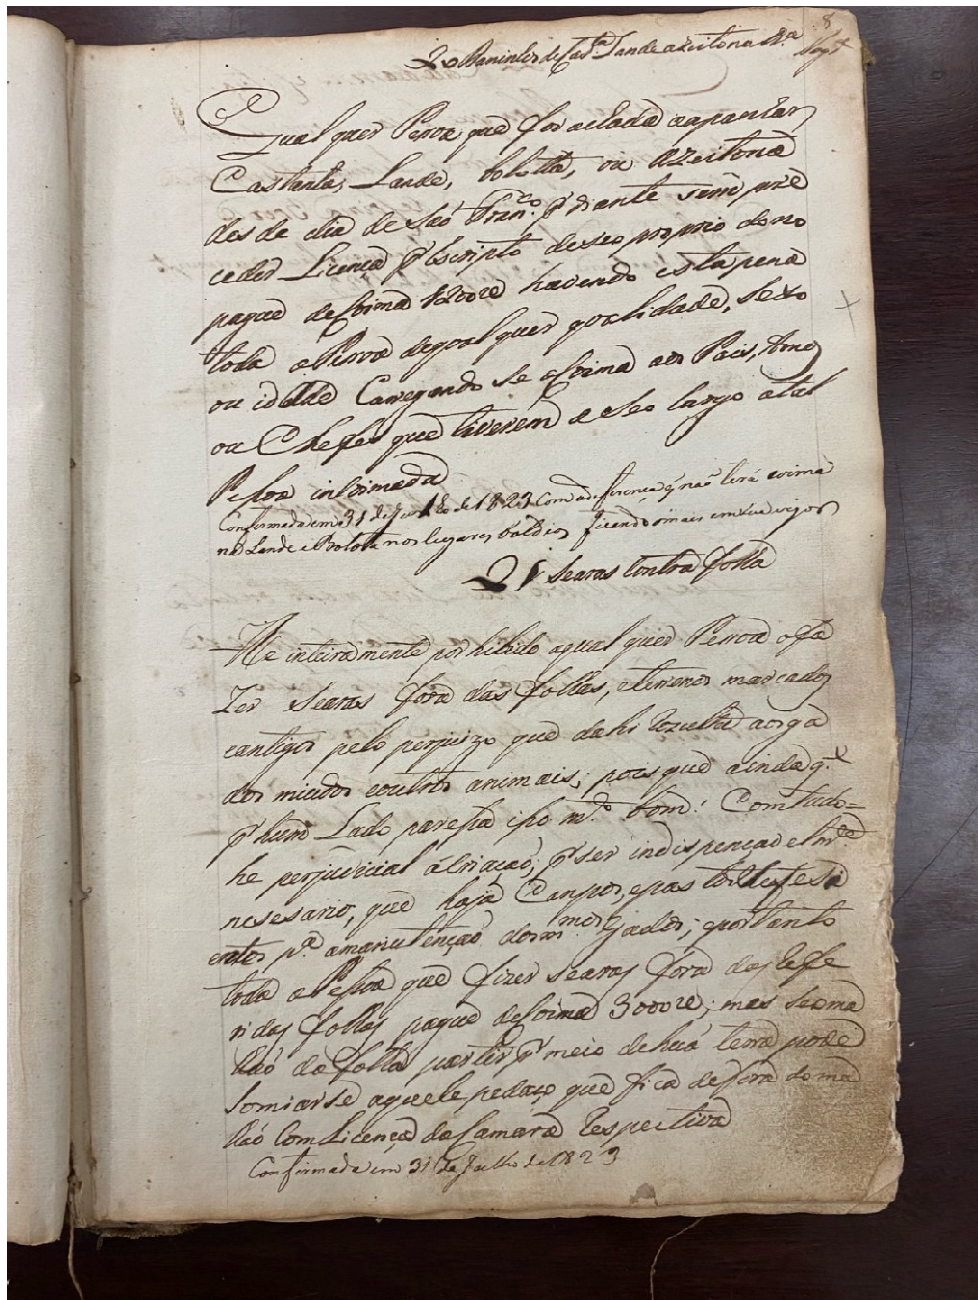 8
20 Raninhos de Cas.ª Lande azeitona &.ª
Qual quer Pesoa que for achada aapanhar
Castanha, Lande, bolotta, ou Azeitona
des de dia de Saó Fran.co p.r diante sem pre
ceder Licença p.r Escripto deseo proprio dono
pague de Coima 1200re havendo esta pena
toda a Pesoa de qoal quer qoalidade, sexo
ou idade Carregando se a Coima aos Pais, Amo
ou Chefes que tiverem a seo Cargo a tal
Pessoa incoimada
Confirmada em 31 de Julho de 1823 Com a diferença q̃ naõ terá coima
na Lande e Bolota nos lugares baldios ficando o mais em seu vigor
21 Searas Contra folha
He inteiramente porhibido aqual quer Pesoa o fa
zer Searas fora das folhas, e terrenos marcados
e antigos pelo perjuizo que dahi rezulta aos ga
dos miudos e outros animais; pois que ainda q.e
p.r hum Lado paresa iso m.to bom: Com tudo=
he perjudicial á Criaçaõ, p.r ser indispençavelm.te
nesesario, que haja Campos, e pastos
entos p.ª amanutençaõ dos mesmos Gados; eportanto
toda a Pessoa que fizer searas fora das refe
ridas folhas pague de Coima 3000re; mas se o ma
lhaó da folha partir p.r meio de huá terra pode
Somiarse aquele pedaço que fica de fora do ma
lhaó Com Licença da Camara Respectiva
Confirmada em 31 de Julho de 1823